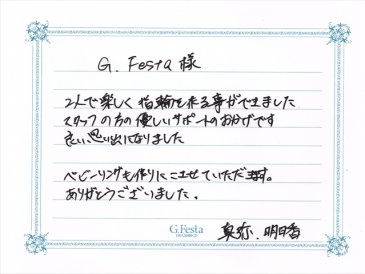 G. Festa 様
2人で楽しく指輪を作る事ができました
スタッフの方の優しいサポートのおかげです
良い思い出になりました
ベビーリングも作りにこさせていただきます。
ありがとうございました。
G.Festa
卓弥、明日香